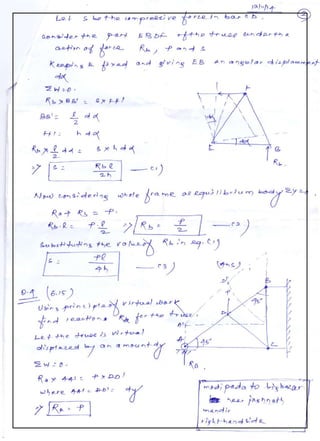 ②
Let S be the compressive force in bar CD.
Consider the part EBDF of the truss under the
action of force Rb, P and S
Keeping E fixed and giving EB an angular displacement
dα
ΣW=0.
Rb × BB' = S × FF'
BB' = l/2 dα
FF' = h dα
Rb × l/2 dα = S × h dα
=> S = Rb l / 2h —(1)
Now considering whole frame as equilibrium body
Ra + Rb = P.
Rb·l = P·l/2 => Rb = P/2 —(2)
Substituting the value of Rb in eq. (1)
S = Pl / 4h —(3) (Ans)
Q.4 (6.15)
Using principle of virtual work
find reaction Ra for the truss.
Let the truss is virtual
displaced by an amount dy
ΣW=0.
Ra × AA' = P × DD'
where AA' = DD' = dy
=> Ra = P
A
B
C
D
E
45°
Rb
near jagnnath
mandir
right hand side